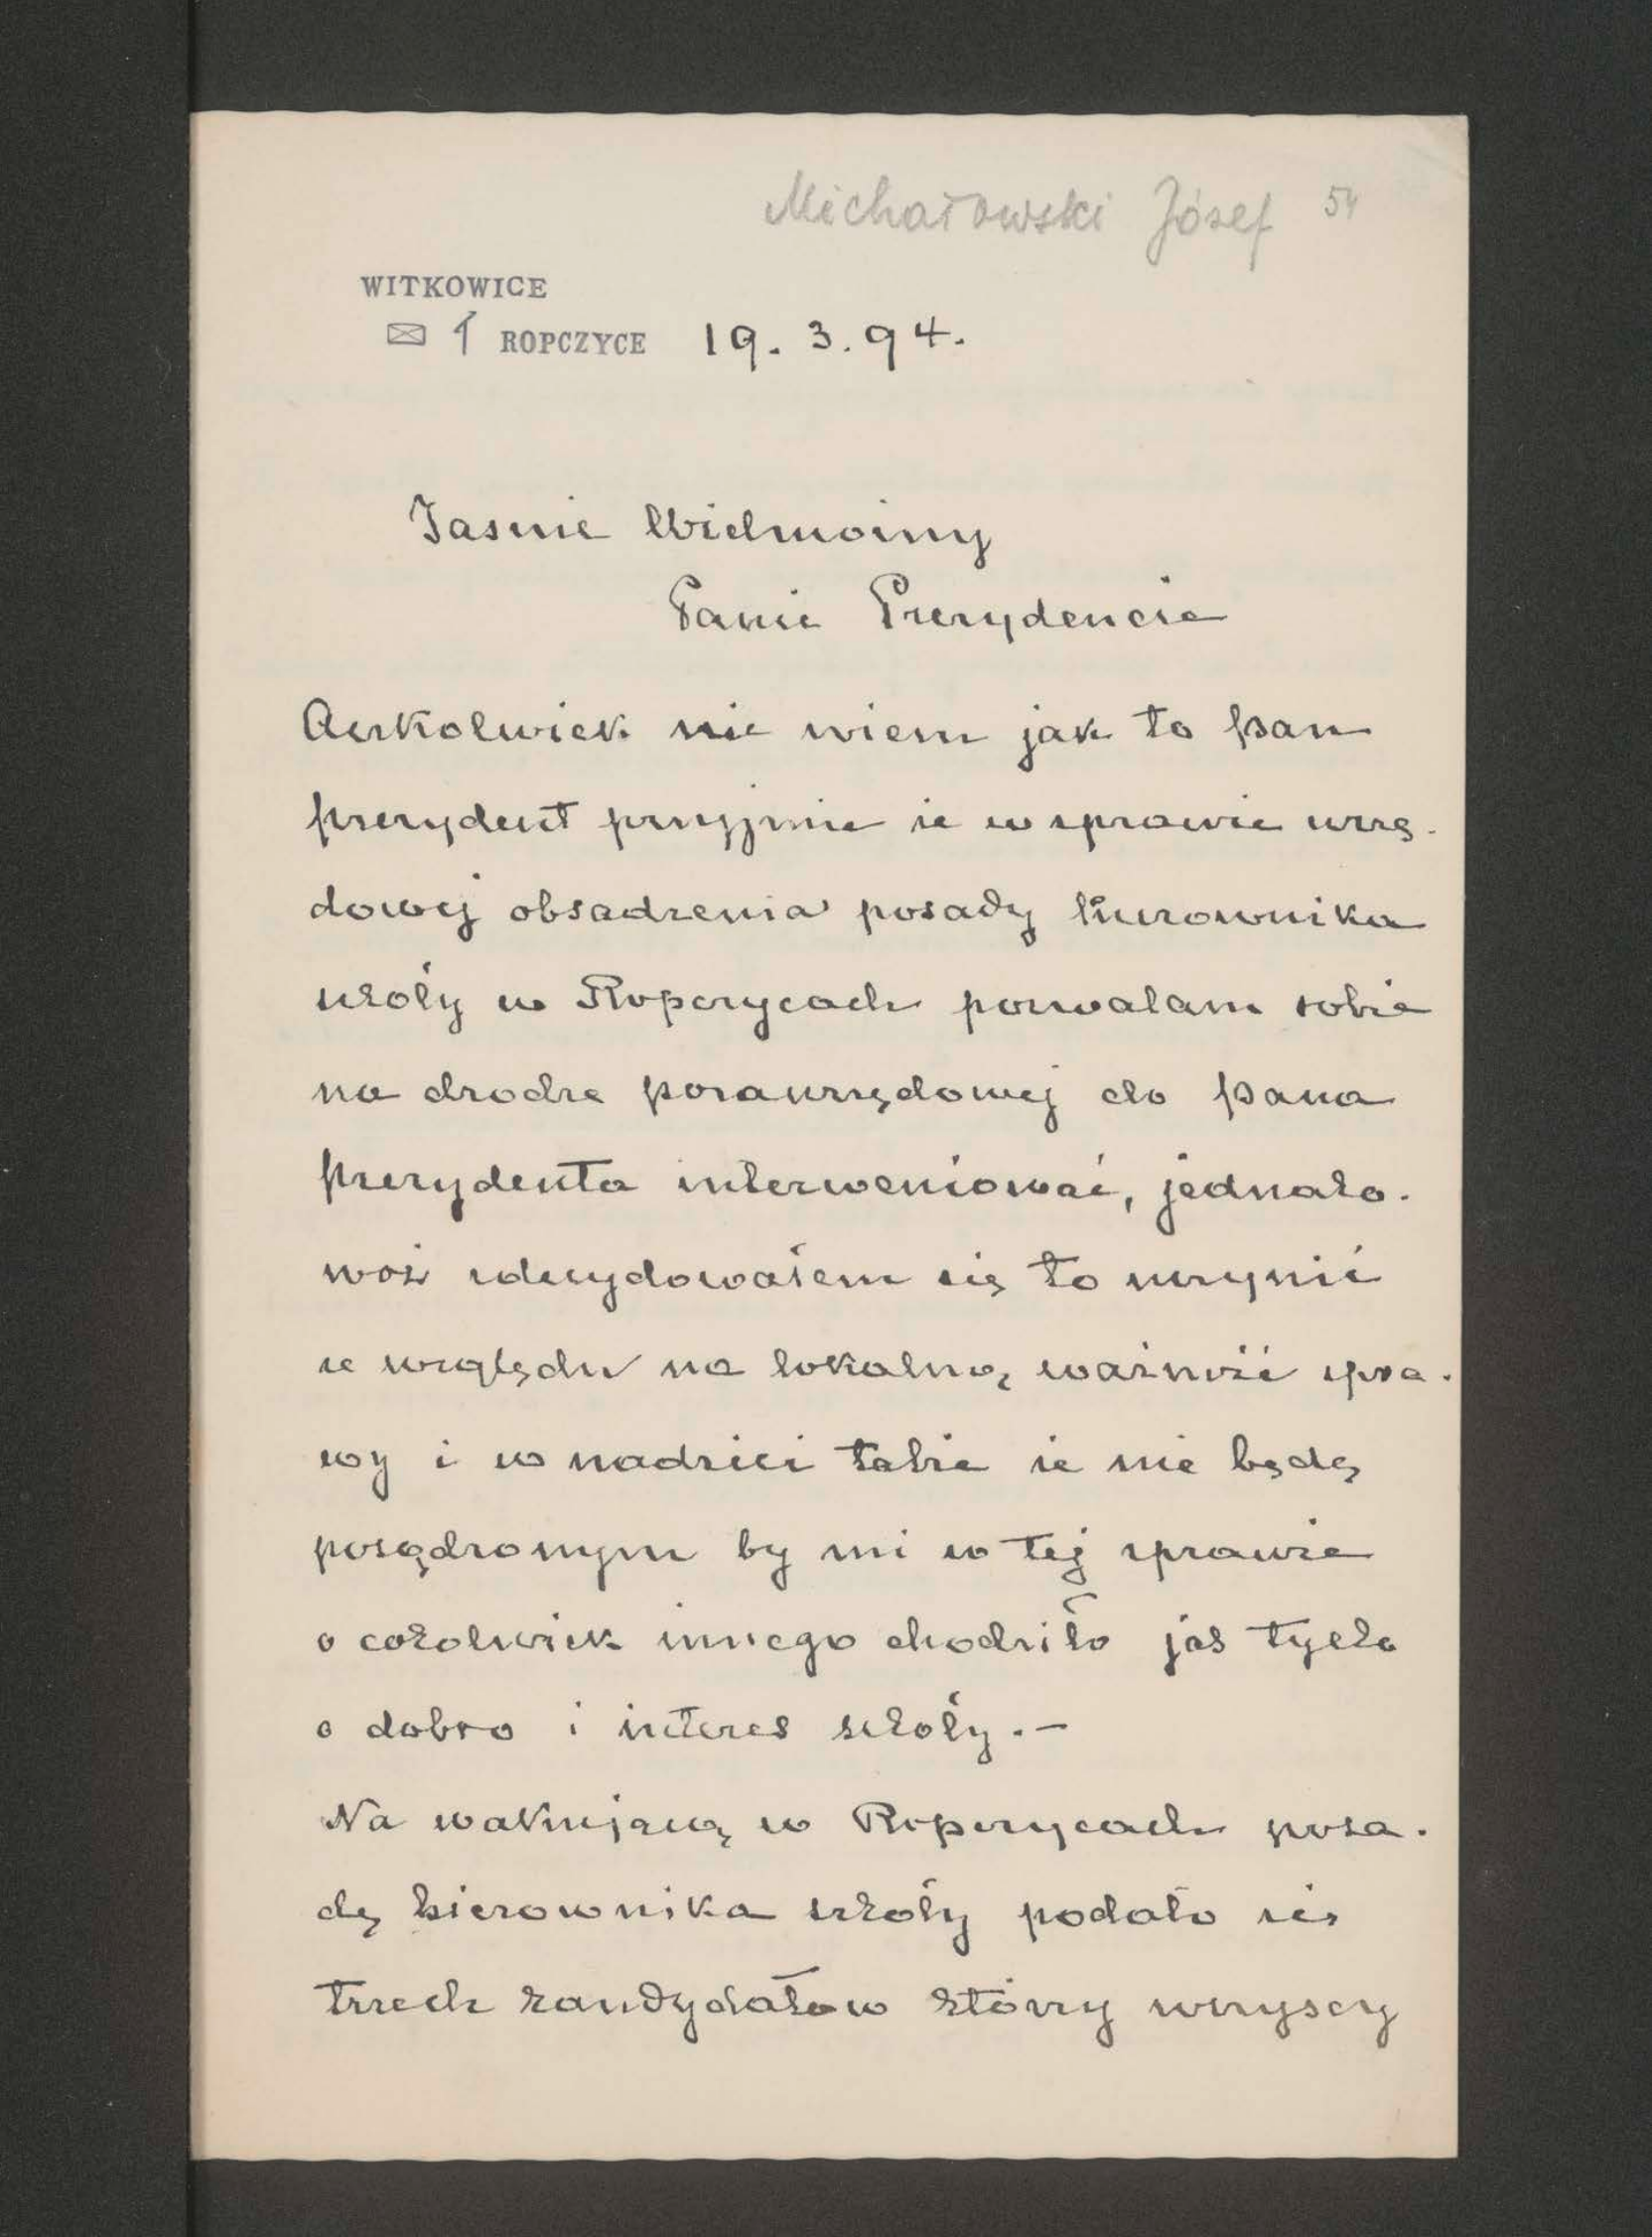 Michałowski Józef 54
WITKOWICE
ROPCZYCE 19. 3. 94.
Jasnie Wielmożny
Panie Prezydencie
Aczkolwiek nie wiem jak to pan
prezydent przyjmie że w sprawie urzę-
dowej obsadzenia posady kierownika
szkoły w Ropczycach pozwalam sobie
na drodze pozaurzędowej do pana
prezydenta interweniować, jednako-
woż zdecydowałem się to uczynić
ze względu na lokalną ważność spra-
wy i w nadziei także że nie będę
posądzonym by mi w tej sprawie
o cokolwiek innego chodziło jak tylko
o dobro i interes szkoły. -
Na wakującą w Ropczycach posa-
dę kierownika szkoły podało się
trzech kandydatow którzy wszyscy